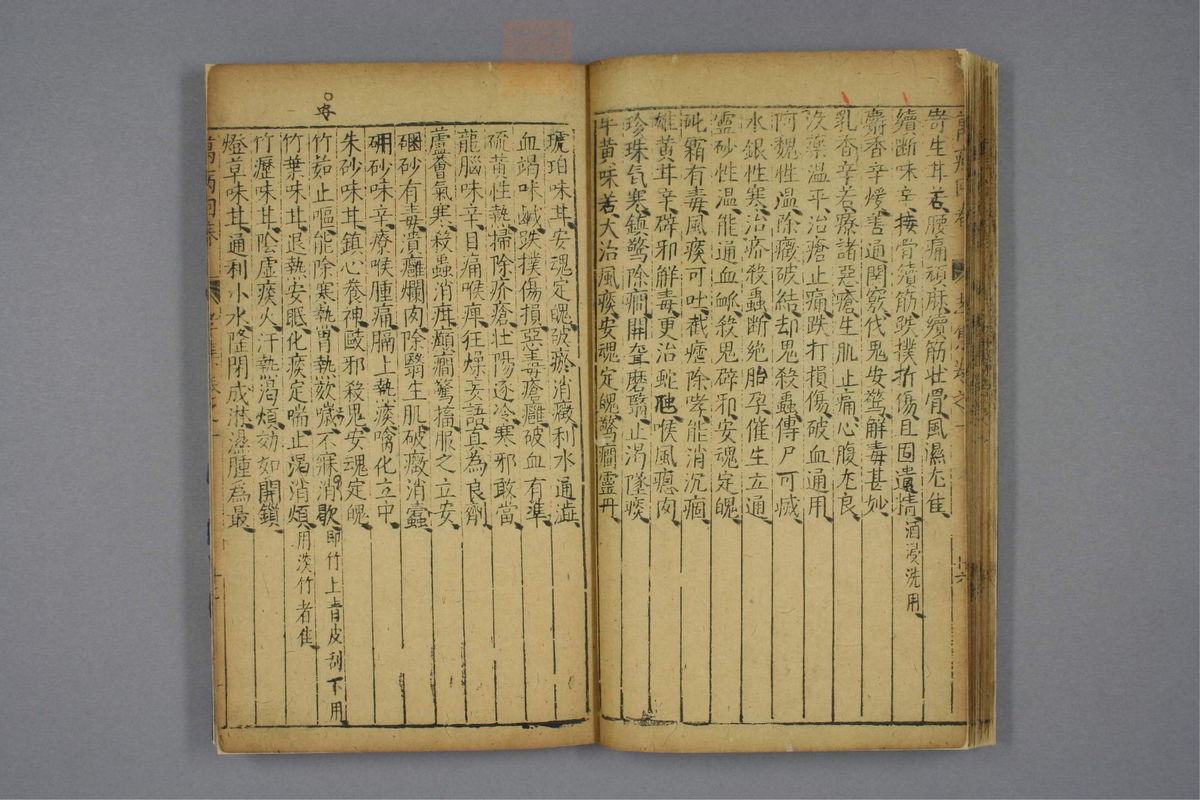 寄生甘苦腰痛頑麻續筋壯骨風濕尤佳
續斷味辛接骨續筋跌撲折傷且固遺精酒浸洗用
麝香辛煖善通關竅伐鬼安驚解毒甚妙
乳香辛苦療諸惡瘡生肌止痛心腹尤良
没藥温平治瘡止痛跌打損傷破血通用
阿魏性温除癥破結却鬼殺蟲傳尸可滅
水銀性寒治疥殺蟲斷絶胎孕催生立通
靈砂性温能通血脈殺鬼辟邪安魂定魄
砒霜有毒風痰可吐截瘧除哮能消沉痼
雄黄甘辛辟邪解毒更治蛇虺喉風瘜肉
珍珠氣寒鎮驚除癇開聾磨翳止渴墜痰
牛黄味苦大治風痰安魂定魄驚癇靈丹
琥珀味甘安魂定魄破瘀消癥利水通澁
血竭味鹹跌撲傷損惡毒瘡癰破血有準
硫黄性熱掃除疥瘡壯陽逐冷寒邪敢當
龍腦味辛目痛喉痺狂燥妄語真為良劑
蘆薈氣寒殺蟲消疳癲癇驚搐服之立安
硇砂有毒潰癰爛肉除翳生肌破癥消毒
硼砂味辛療喉腫痛膈上熱痰噙化立中
朱砂味甘鎮心養神毆邪殺鬼安魂定魄
竹茹止嘔能除寒熱胃熱欬噦不寐消歇即竹上青皮刮下用
竹葉味甘退熱安眠化痰定喘止渴消煩用淡竹者佳
竹瀝味甘陰虚痰火汗熱渴煩効如開鎖
燈草味甘通利小水癃閉成淋濕腫為最
萬病回春